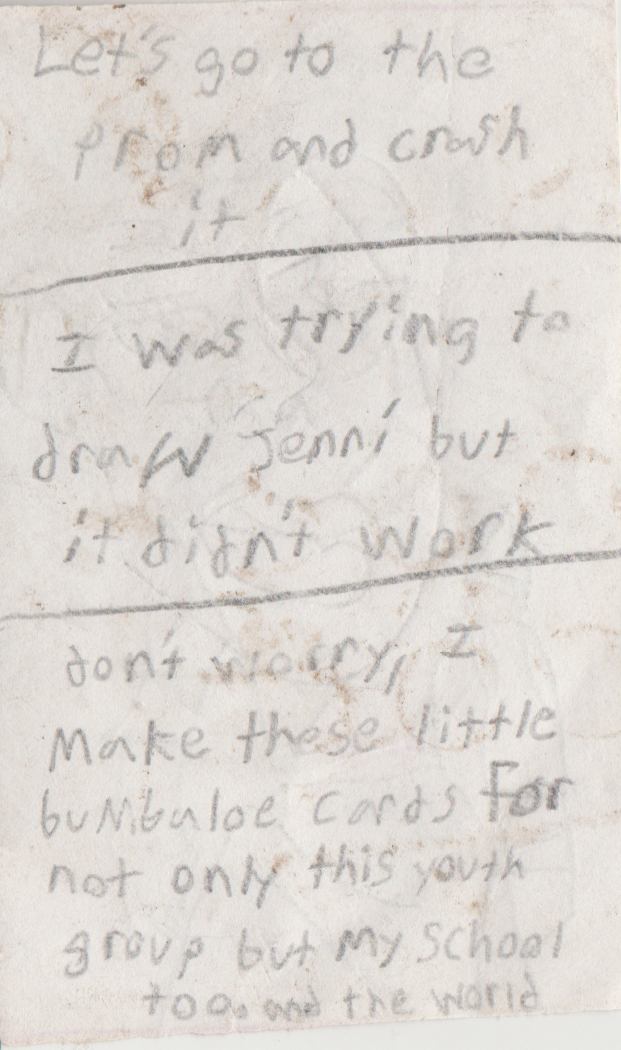 Let's go to the
prom and crash
it
I was trying to
draw Jenni but
it didn't work
don't worry, I
Make these little
buMbaloe cards for
not only this youth
group but My School
too. and the world